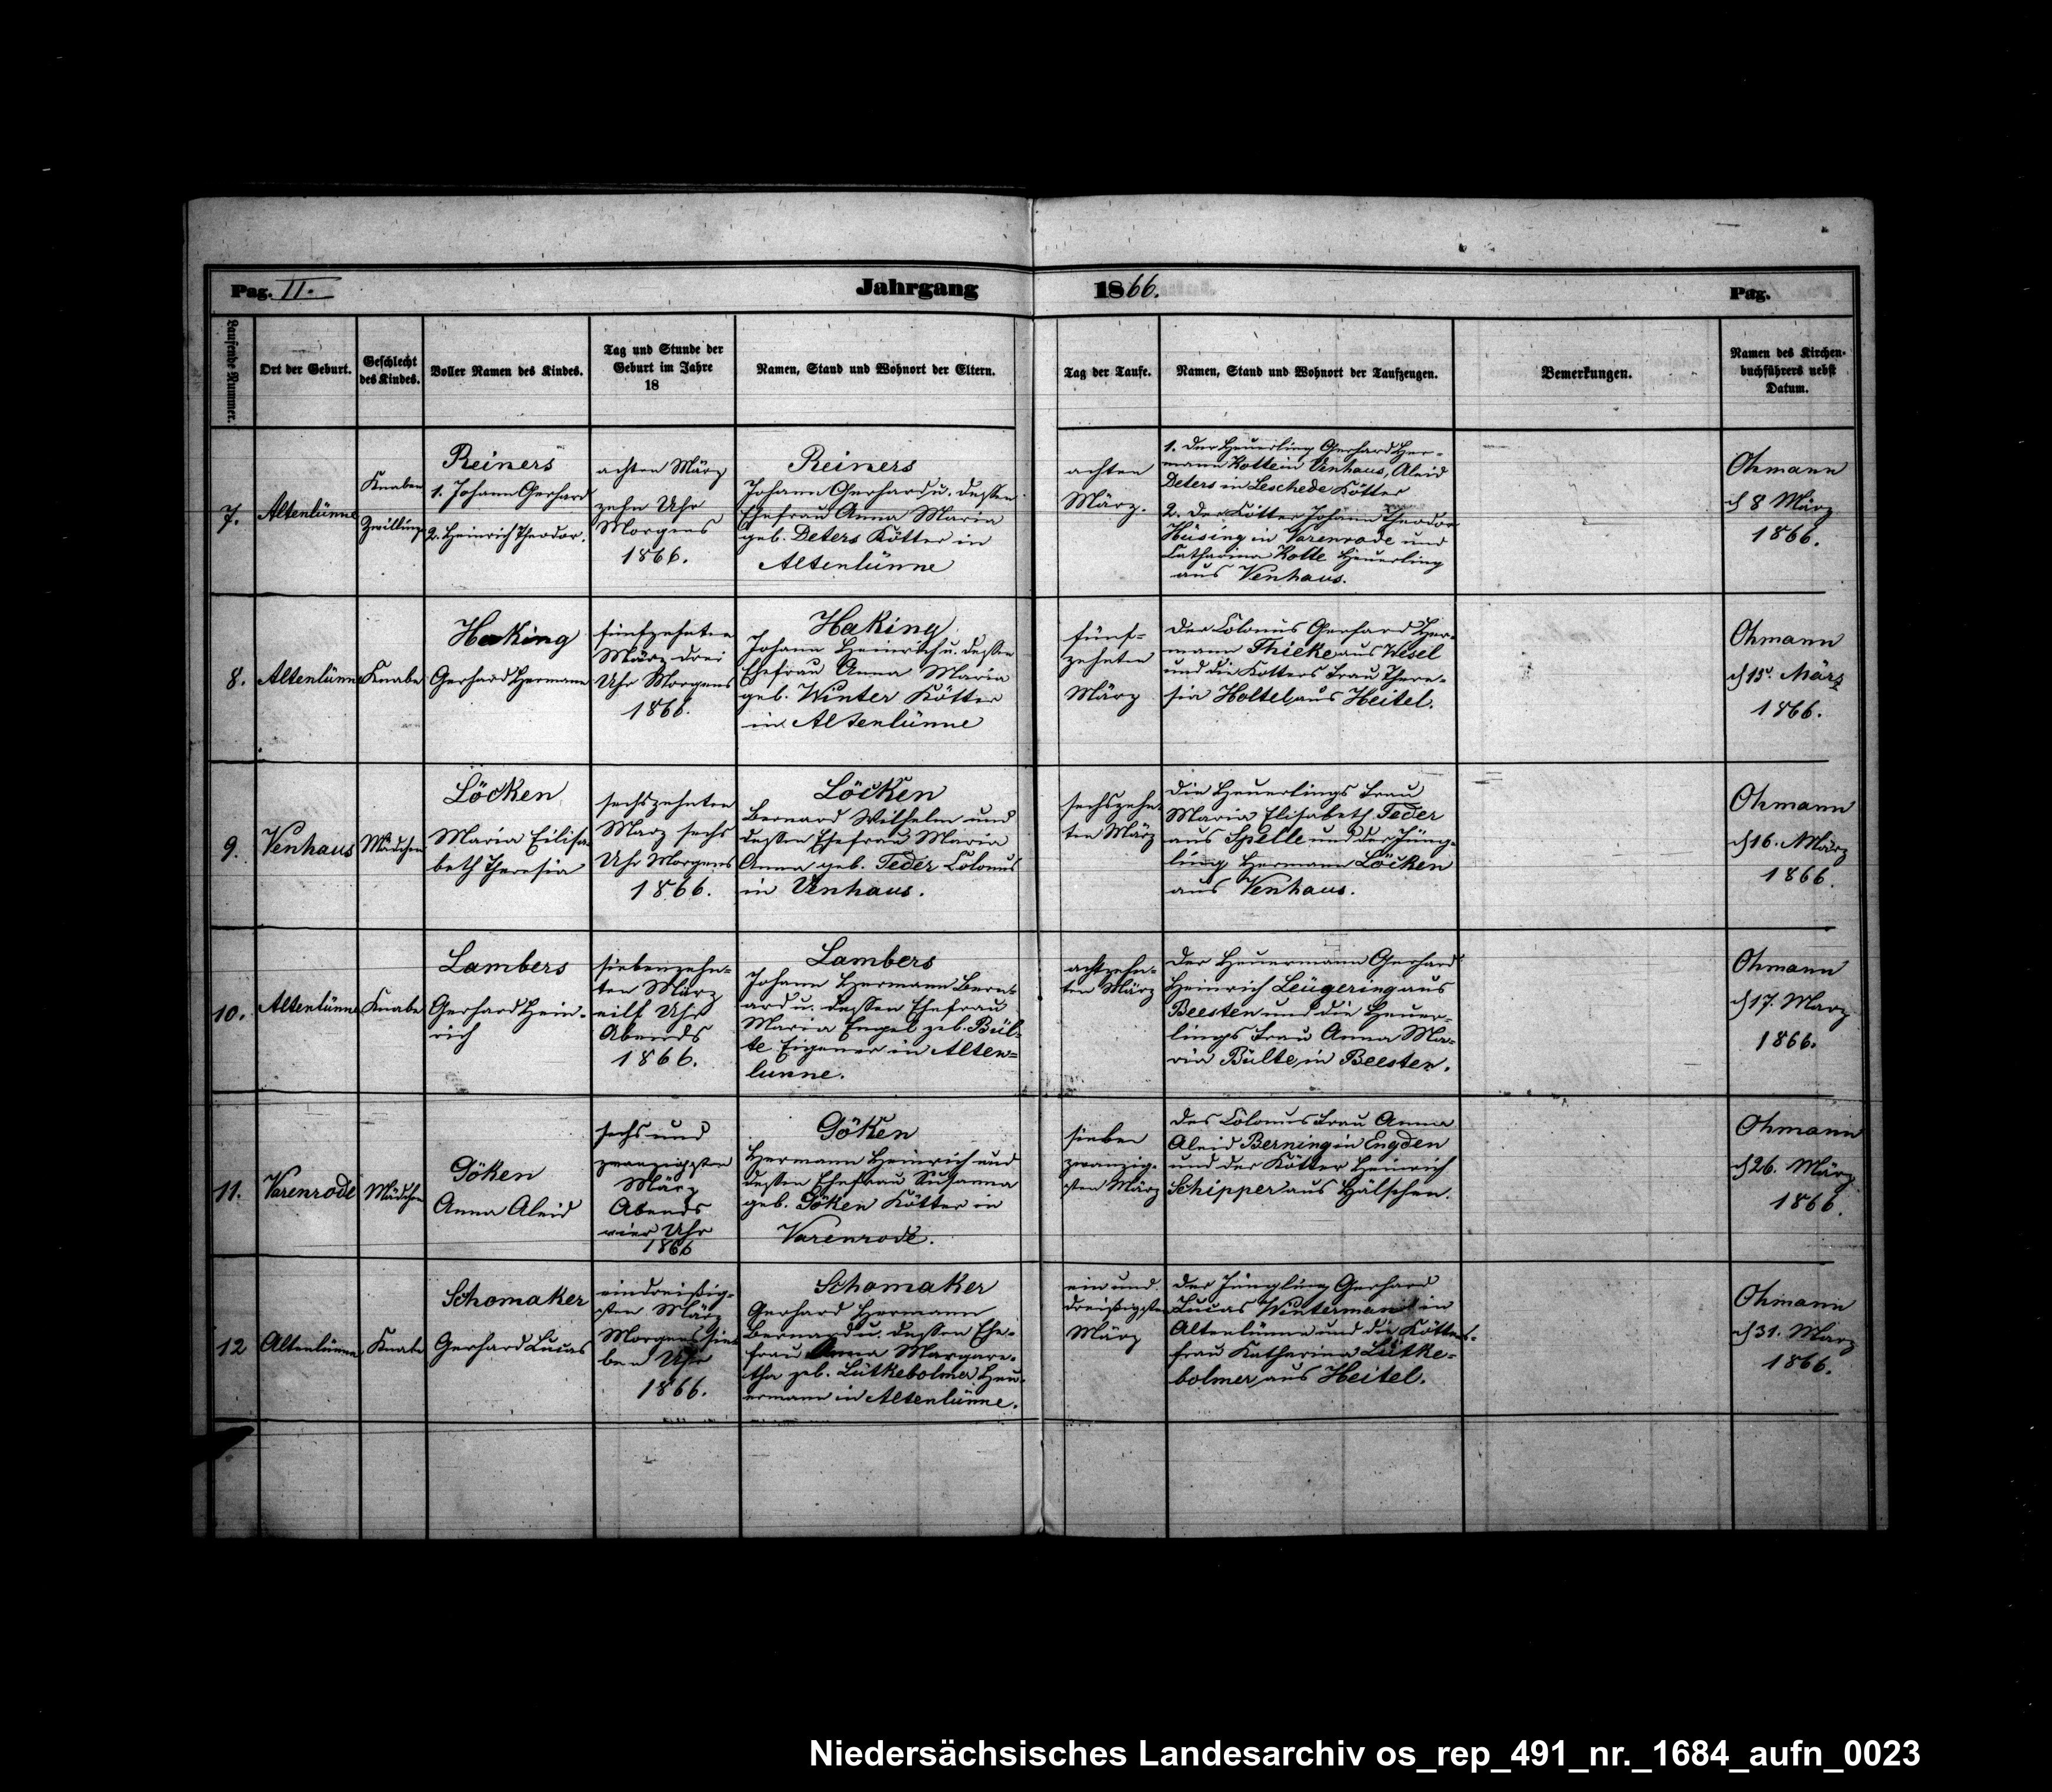 Pag. II. Jahrgang 1866. Pag.
Laufende Nummer.
Ort der Geburt.
Geschlecht
des Kindes.
Voller Namen des Kindes.
Tag und Stunde der
Geburt im Jahre
18
Namen, Stand und Wohnort der Eltern.
Tag der Taufe.
Namen, Stand und Wohnort der Taufzeugen.
Bemerkungen.
Namen des Kirchen-
buchführers nebst
Datum.
7.
Altenlünne
Knaben
Zwillinge
Reiners
1. Johann Gerhard
2. Heinrich Theodor.
achten März
zehn Uhr
Morgens
1866.
Reiners
Johann Gerhard u. dessen
Ehefrau Anna Maria
geb. Deters Kötter in
Altenlünne
achten
März.
1. der Heuerling Gerhard Her-
mann Kotte in Venhaus, Aleid
Deters in Leschede Kötter
2. der Kötter Johann Theodor
Hüsing in Varenrode und
Catharina Kotte Heuerling
aus Venhaus.
Ohmann
d 8 März
1866.
8.
Altenlünne
Knabe
Haking
Gerhard Hermann
fünfzehnten
März drei
Uhr Morgens
1866.
Haking
Johann Heinrich u. dessen
Ehefrau Anna Maria
geb. Winter Kötter
in Altenlünne
fünf-
zehnten
März
der Colonus Gerhard Her-
mann Thieke aus Wesel
und die Kotters Frau There-
sia Holtel aus Heitel.
Ohmann
d 15. März
1866.
9.
Venhaus
Mädchen
Löcken
Maria Eilisa-
beth Theresia
sechszehnten
Marz sechs
Uhr Morgens
1866.
Löcken
Bernard Wilhelm und
dessen Ehefrau Maria
Anna geb. Feder Colonus
in Venhaus.
sechszehn-
ten März
die Heuerlings Frau
Maria Elisabeth Feder
aus Spelle und der Jüng-
ling Hermann Löcken
aus Venhaus.
Ohmann
d 16. März
1866.
10.
Altenlünne
Knabe
Lambers
Gerhard Hein-
rich
siebenzehn-
ten März
eilf Uhr
Abends
1866.
Lambers
Johann Hermann Bern-
ard u. dessen Ehefrau
Maria Engel geb. Bül-
te Eigener in Alten-
lunne.
achtzehn-
ten März
der Heuermann Gerhard
Heinrich Leügering aus
Beesten und die Heuer-
lings Frau Anna Ma-
ria Bülte in Beesten.
Ohmann
d 17. Marz
1866.
11.
Varenrode
Mädchen
Göken
Anna Aleid
sechs und
zwanzigsten
März
Abends
vier Uhr
1866
Göken
Hermann Heinrich und
dessen Ehefrau Susanna
geb. Göken Kötter in
Varenrode.
sieben
zwanzig-
sten März
des Colonus Frau Anna
Aleid Berning in Engden
und der Kötter Heinrich
Schipper aus Hälschen.
Ohmann
d 26. März
1866.
12
Altenlünne
Knabe
Schomaker
Gerhard Lucas
eindreißig-
sten März
Morgens sie-
ben Uhr
1866.
Schomaker
Gerhard Hermann
Bernard u. dessen Ehe-
frau Anna Margare-
tha geb. Lütkebolmer Heu-
ermann in Altenlünne.
ein und
dreißigsten
März
der Jüngling Gerhard
Lucas Wintermann in
Altenlünne und die Kötters-
frau Katharina Lütke-
bolmer aus Heitel.
Ohmann
d 31. März
1866.
Niedersächsisches Landesarchiv os_rep_491_nr._1684_aufn_0023